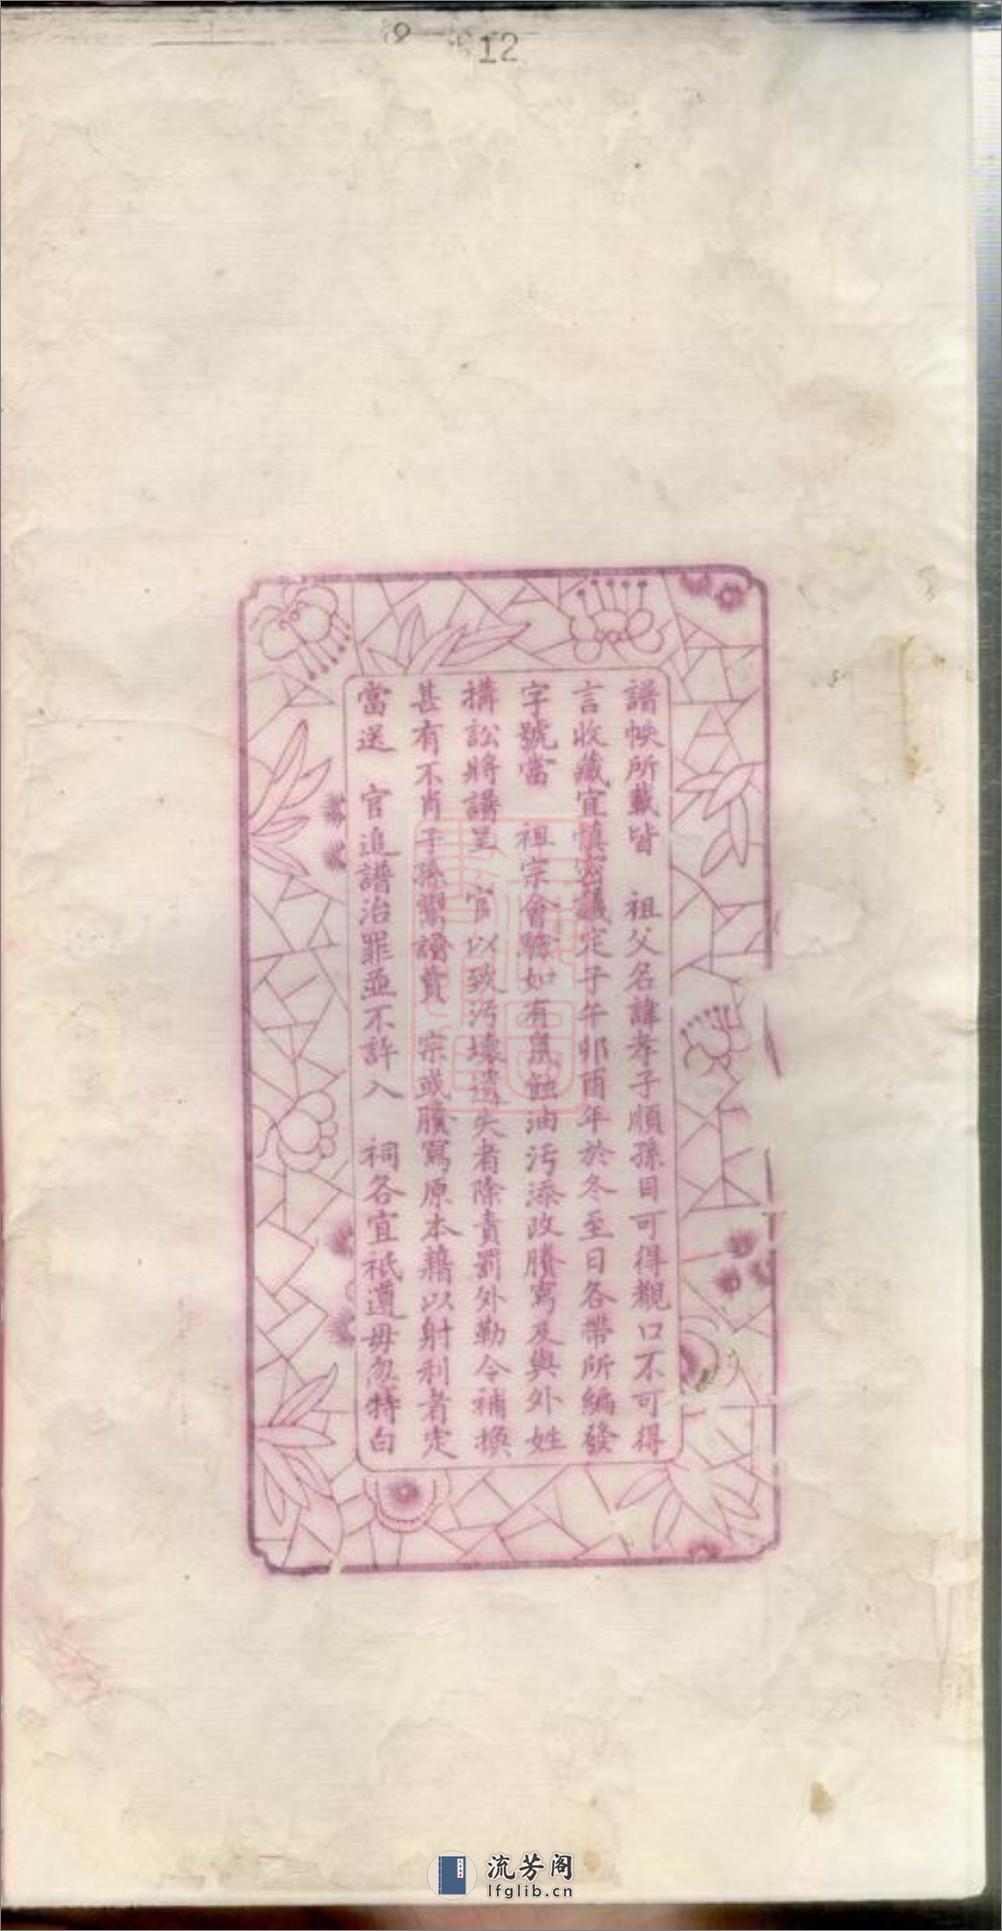 12
譜帙所載皆 祖父名諱孝子順孫目可得觀口不可得
言收藏宜慎密議定子午卯酉年於冬至日各帶所編發
字號當 祖宗會驗如有鼠蝕油污添改謄寫及與外姓
搆訟將譜呈 官以致污壞遺失者除責罰外勒令補換
甚有不肖子孫鬻譜賣 宗或謄寫原本藉以射利者定
當送 官追譜治罪並不許入 祠各宜祗遵毋忽特白
流芳阁
lfglib.cn